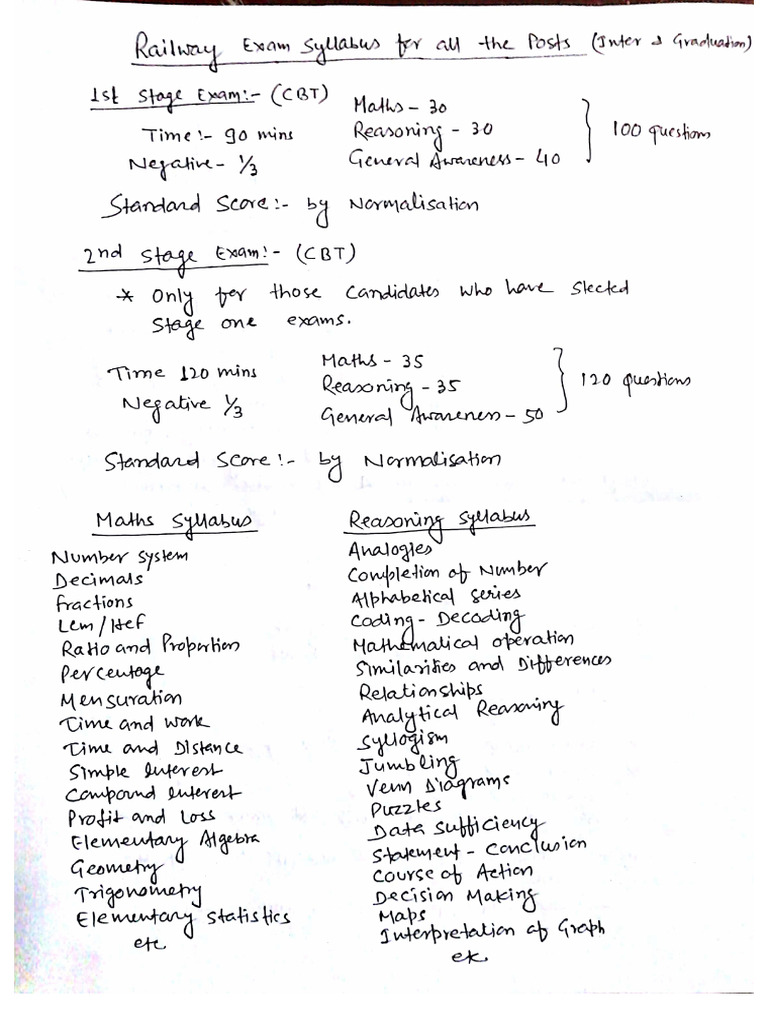 Railway Exam Syllabus for all the Posts (Inter & Graduation)
1st Stage Exam:- (CBT)
Maths - 30
Time:- 90 mins
Reasoning - 30
100 questions
Negative - 1/3
General Awareness - 40
Standard Score:- by Normalisation
2nd Stage Exam:- (CBT)
* Only for those candidates who have slected
stage one exams.
Maths - 35
Time 120 mins
Reasoning - 35
120 questions
Negative 1/3
General Awareness - 50
Standard Score:- by Normalisation
Maths Syllabus
Number System
Decimals
fractions
Lcm/Hcf
Ratio and Proportion
Percentage
Mensuration
Time and work
Time and Distance
Simple Interest
Compound Interest
Profit and Loss
Elementary Algebra
Geometry
Trigonometry
Elementary Statistics
etc
Reasoning Syllabus
Analogies
Completion of Number
Alphabetical Series
Coding - Decoding
Mathematical operation
Similarities and Differences
Relationships
Analytical Reasoning
Syllogism
Jumbling
Venn Diagrams
Puzzles
Data Sufficiency
Statement - Conclusion
Course of Action
Decision Making
Maps
Interpretation of Graph
etc.